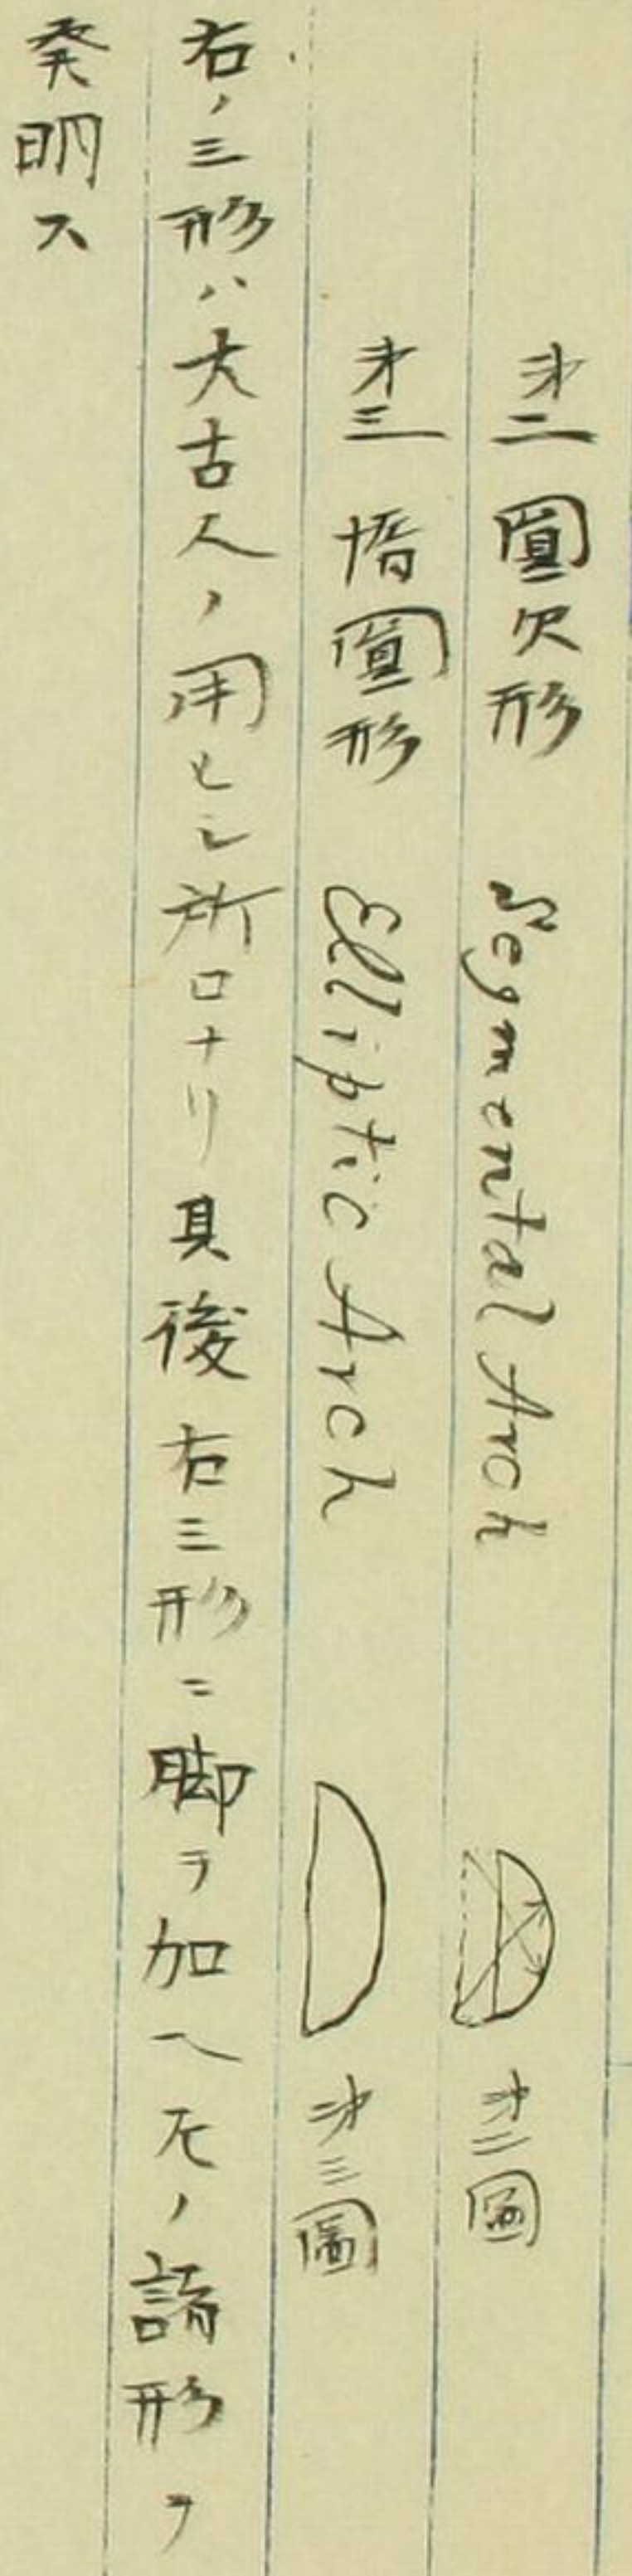 第二 圓欠形 Segmental Arch 第二圖
第三 楕圓形 Elliptic Arch 第三圖
右ノ三形ハ大古人ノ用ヒシ所ロナリ其後右三形ニ脚ヲ加ヘ左ノ諸形ヲ
発明ス